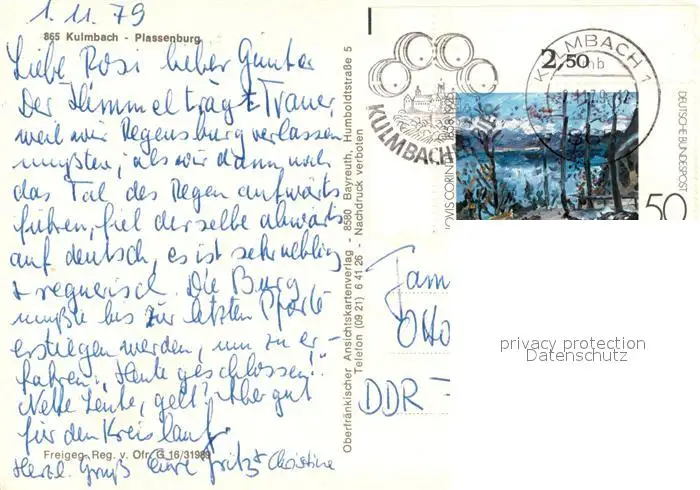 1.11.79
865 Kulmbach - Plassenburg
Liebe Rosi lieber Günter
Der Himmel trägt Trauer,
weil wir Regensburg verlassen
mußten; als wir dann noch
das Tal des Regen aufwärts
fuhren, fiel derselbe abwärts
auf deutsch, es ist sehr neblig
+ regnerisch. Die Burg
mußte bis zur letzten Pforte
erstiegen werden, um zu er-
fahren, "Heute geschlossen!"
Nette Leute, gell? Aber gut
für den Kreislauf.
Freigeg. Reg. v. Ofr. G 16/31989
Herzl. Gruß Eure Fritz + Christine
Oberfränkischer Ansichtskartenverlag - 8580 Bayreuth, Humboldtstraße 5
Telefon (09 21) 6 41 26 - Nachdruck verboten
KULMBACH
2,50
KULMBACH 1
DEUTSCHE BUNDESPOST
50
LOVIS CORIN
1858-1925
Fam
Otto
DDR -
privacy protection
Datenschutz